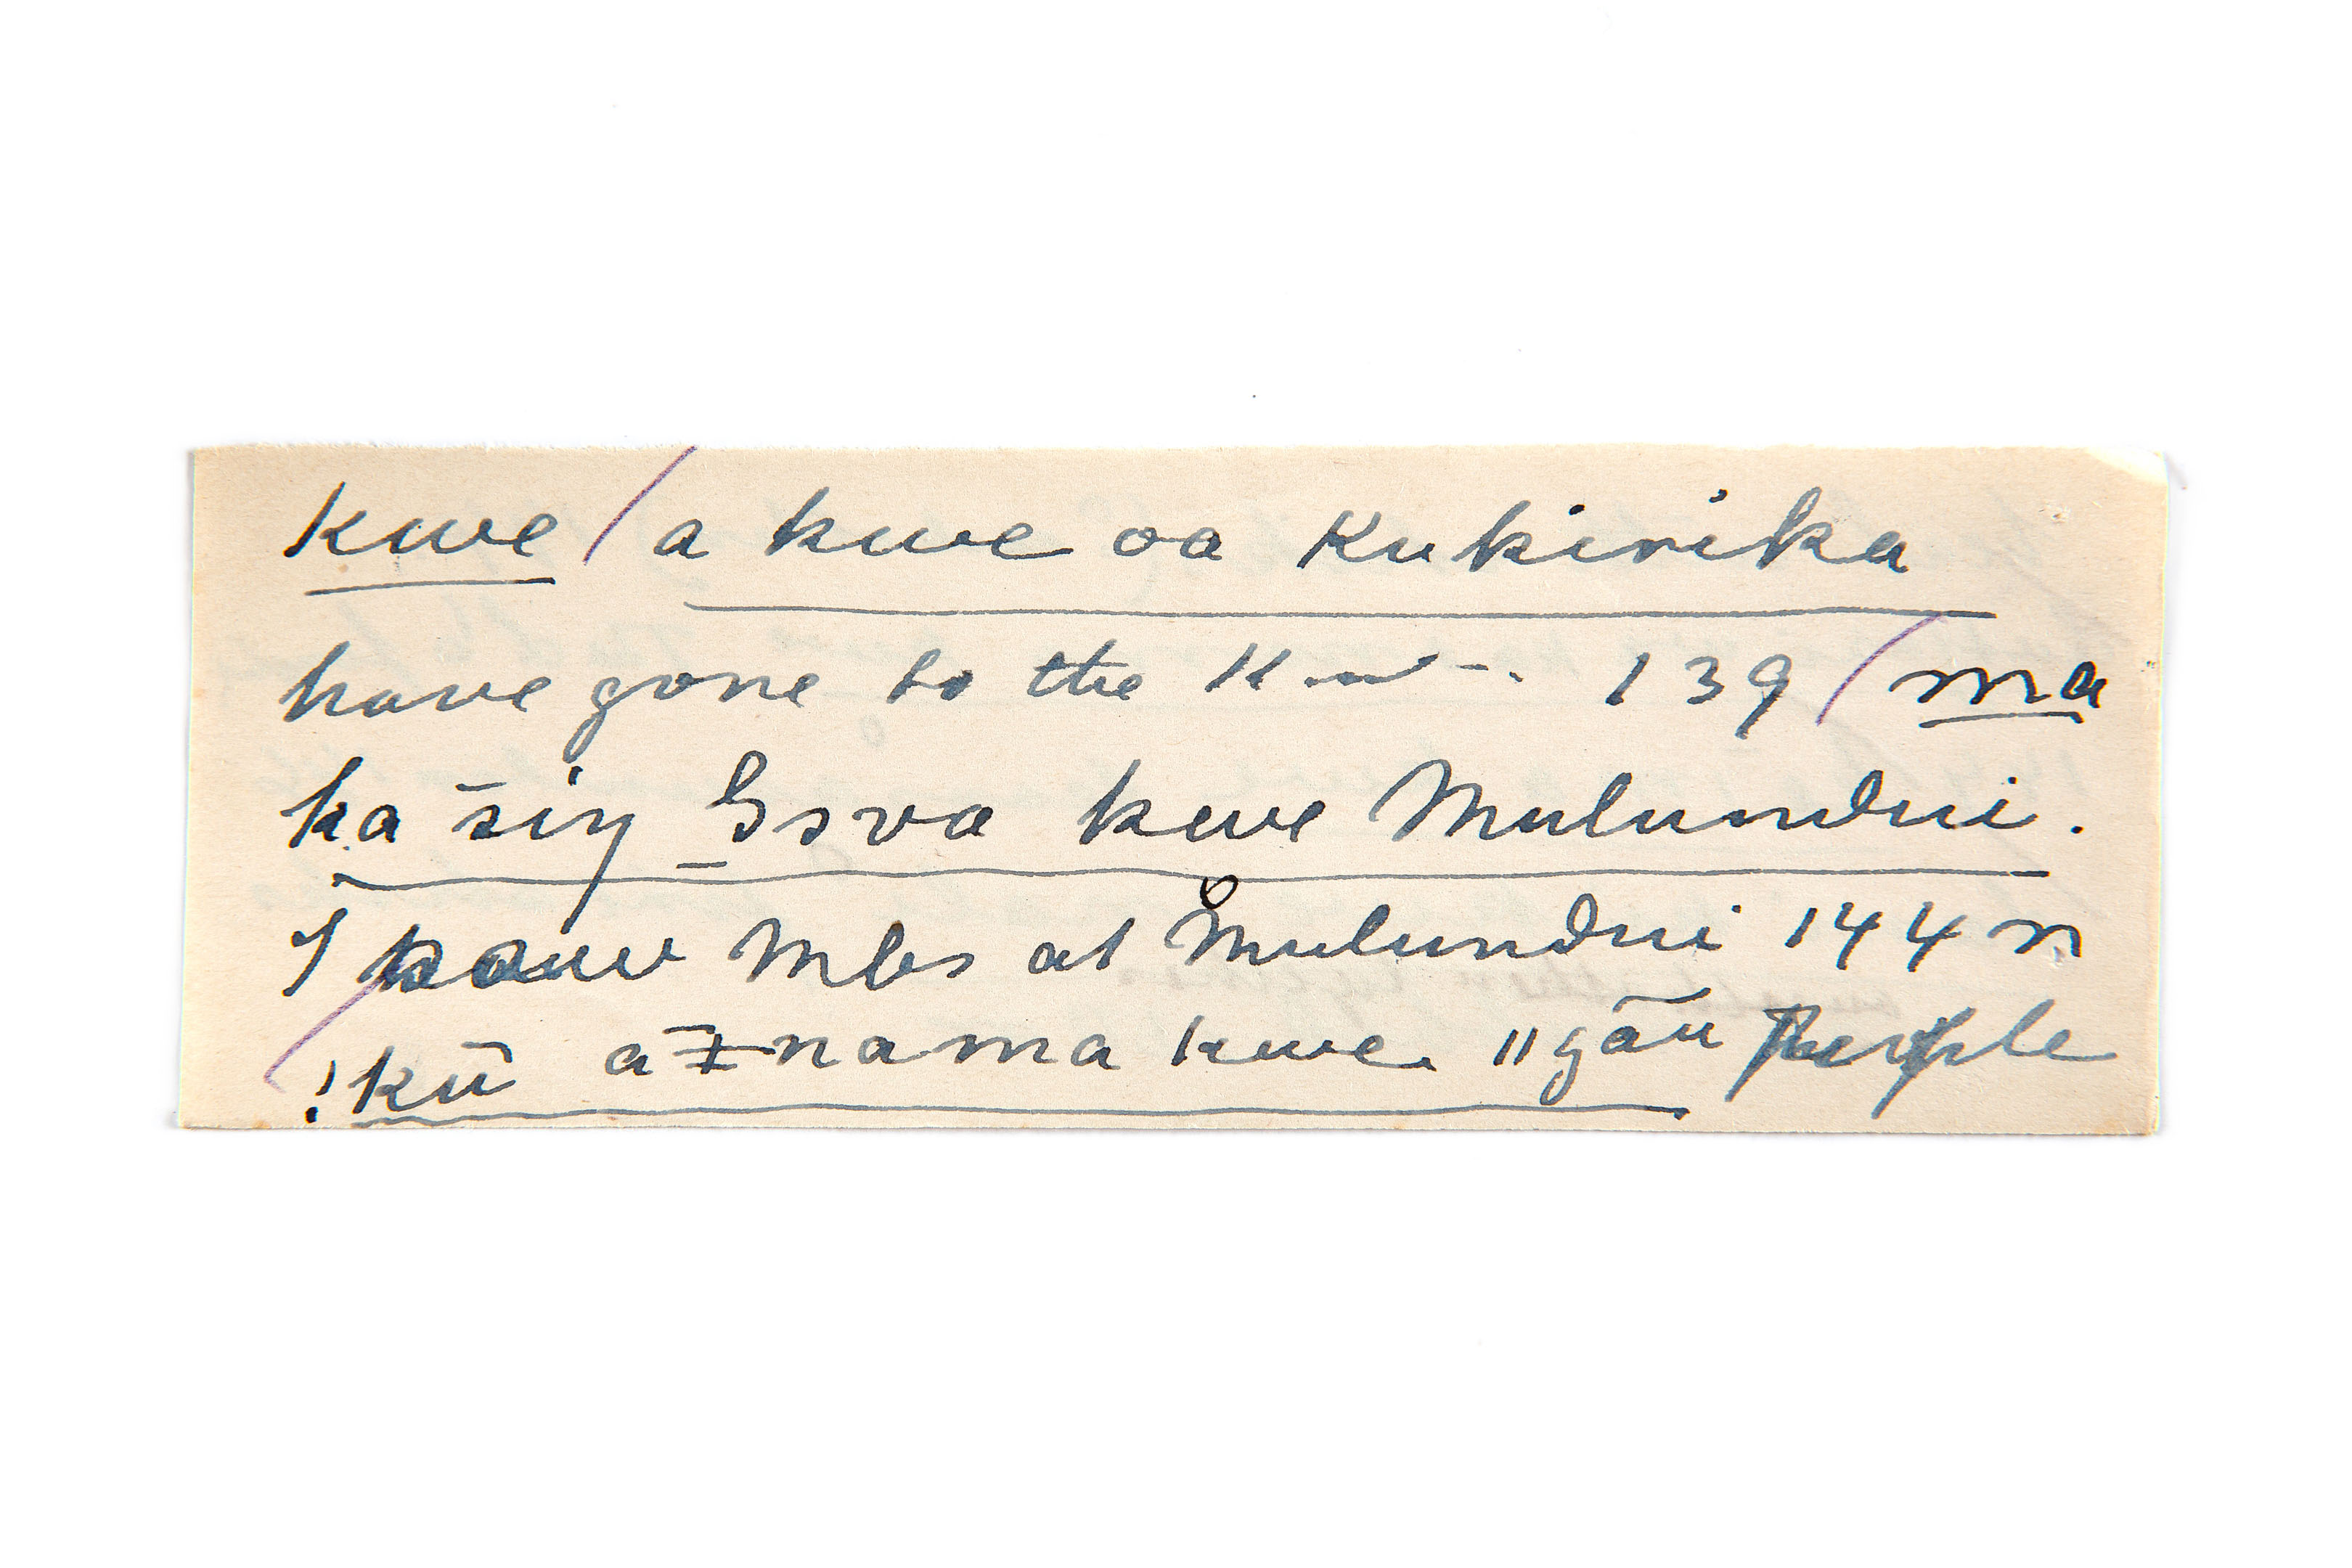 kwe / a kwe oa Kukirika
have gone to the K 139 / ma
ka šiŋ kwe Mulundui.
I saw Mbs at Mulundui 144 n
/ !kū a ǂnama kwe. ‖gāu People